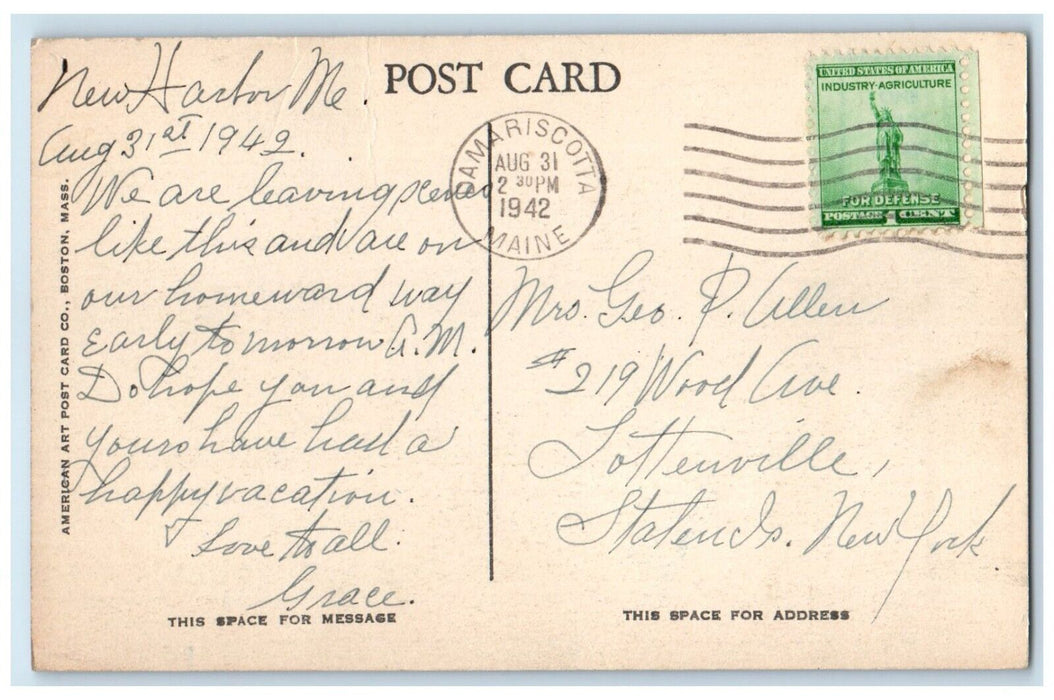 POST CARD
New Harbor Me.
Aug 31st 1942.
We are leaving scenes
like this and are on
our homeward way
Early tomorrow A.M.
Do hope you and
yours have had a
happy vacation.
Love to all.
Grace.
THIS SPACE FOR MESSAGE
AMERICAN ART POST CARD CO., BOSTON, MASS.
DAMARISCOTTA
AUG 31
2 30 PM
1942
MAINE
UNITED STATES OF AMERICA
INDUSTRY-AGRICULTURE
FOR DEFENSE
POSTAGE 1 CENT
Mrs. Geo. P. Allen
#219 Wood Ave.
Tottenville,
Staten Is. New York
THIS SPACE FOR ADDRESS